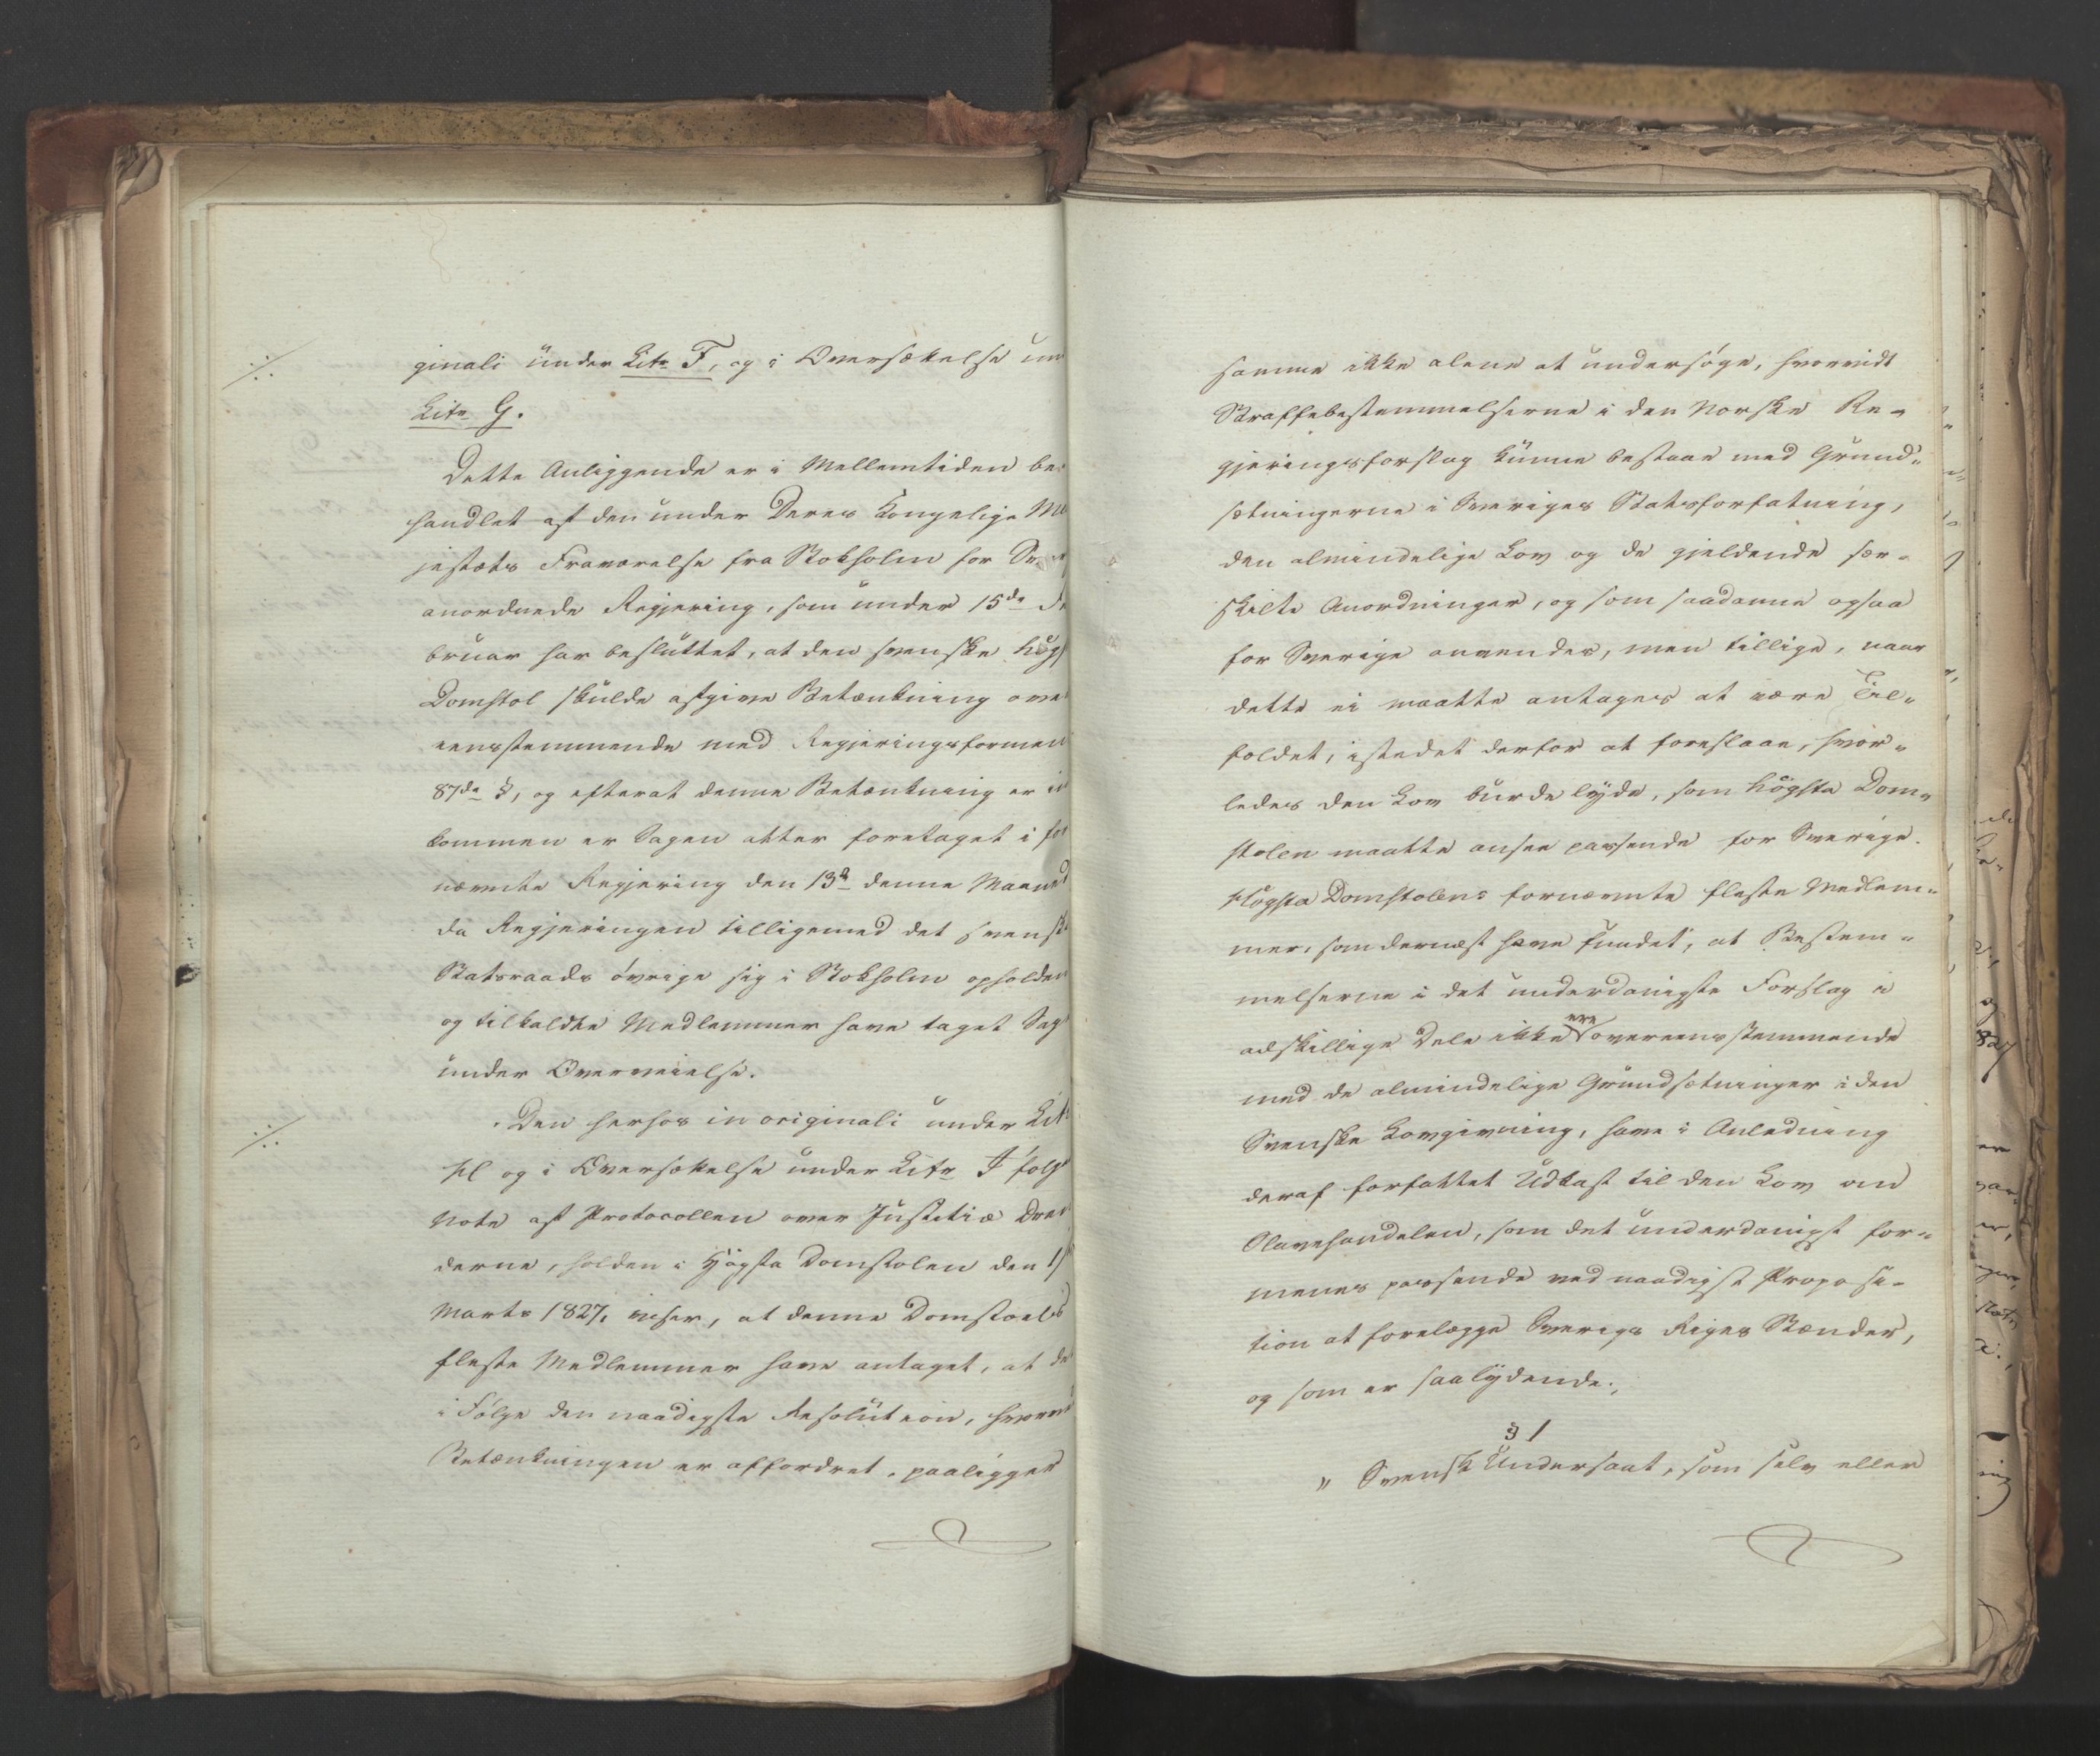 ginali under Litr F, og i Oversættelse un
Litr G.
Dette Anliggende er i Mellemtiden be-
handlet af den under Deres Kongelige Ma
jestæts Fraværelse fra Stokholm for Sverig
anordnede Regjering, som under 15de Fe
bruar har besluttet, at den svenske høgst
Domstol skulde afgive Betænkning over
eensstemmende med Regjeringsformen
87de §, og efterat denne Betænkning er in
kommen er Sagen atter foretaget i for
nævnte Regjering den 13de denne Maaned
da Regjeringen tilligemed det svenske
Statsraads övrige sig i Stokholm opholden
og tilkaldte Medlemmer have taget Sag
under Overveielse.
Den herhos in originali under Litr
H og i Oversættelse under Litr I følg
Note af Protocollen over Justitiæ Ären
derne, holden i Högsta Domstolen den 1ste
Marts 1827, viser, at denne Domstoels
fleste Medlemmer have antaget, at det
i Følge den naadigste Resolution, hvorved
Betænkningen er affordret, paaligger
samme ikke alene at undersöge, hvorvidt
Straffebestemmelserne i den Norske Re-
gjeringsforslag kunne bestaae med Grund-
sætningerne i Sveriges Statsforfatning,
den almindelige Lov og de gjeldende sær-
skilte Anordninger, og som saadanne ogsaa
for Sverige anvendes, men tillige, naar
dette ei maatte antages at være Til-
foldet, istedet derfor at foreslaae, hvor-
ledes den Lov burde lyde, som högsta Dom-
stolen maatte ansee passende for Sverige.
Högsta Domstolens fornævnte fleste Medlem-
mer, som dernæst have fundet, at Bestem-
melserne i det underdanigste Forslag i
adskillige Dele ikke ere overeensstemmende
med de almindelige Grundsætninger i den
Svenske Lovgivning, have i Anledning
deraf forfattet Udkast til den Lov om
Slavehandelen, som det underdanigst for-
menes passende ved naadigst Proposi-
tion at forelægge Sverigs Riges Stænder,
og som er saalydende.,
§ 1
" Svensk Undersaat, som selv eller